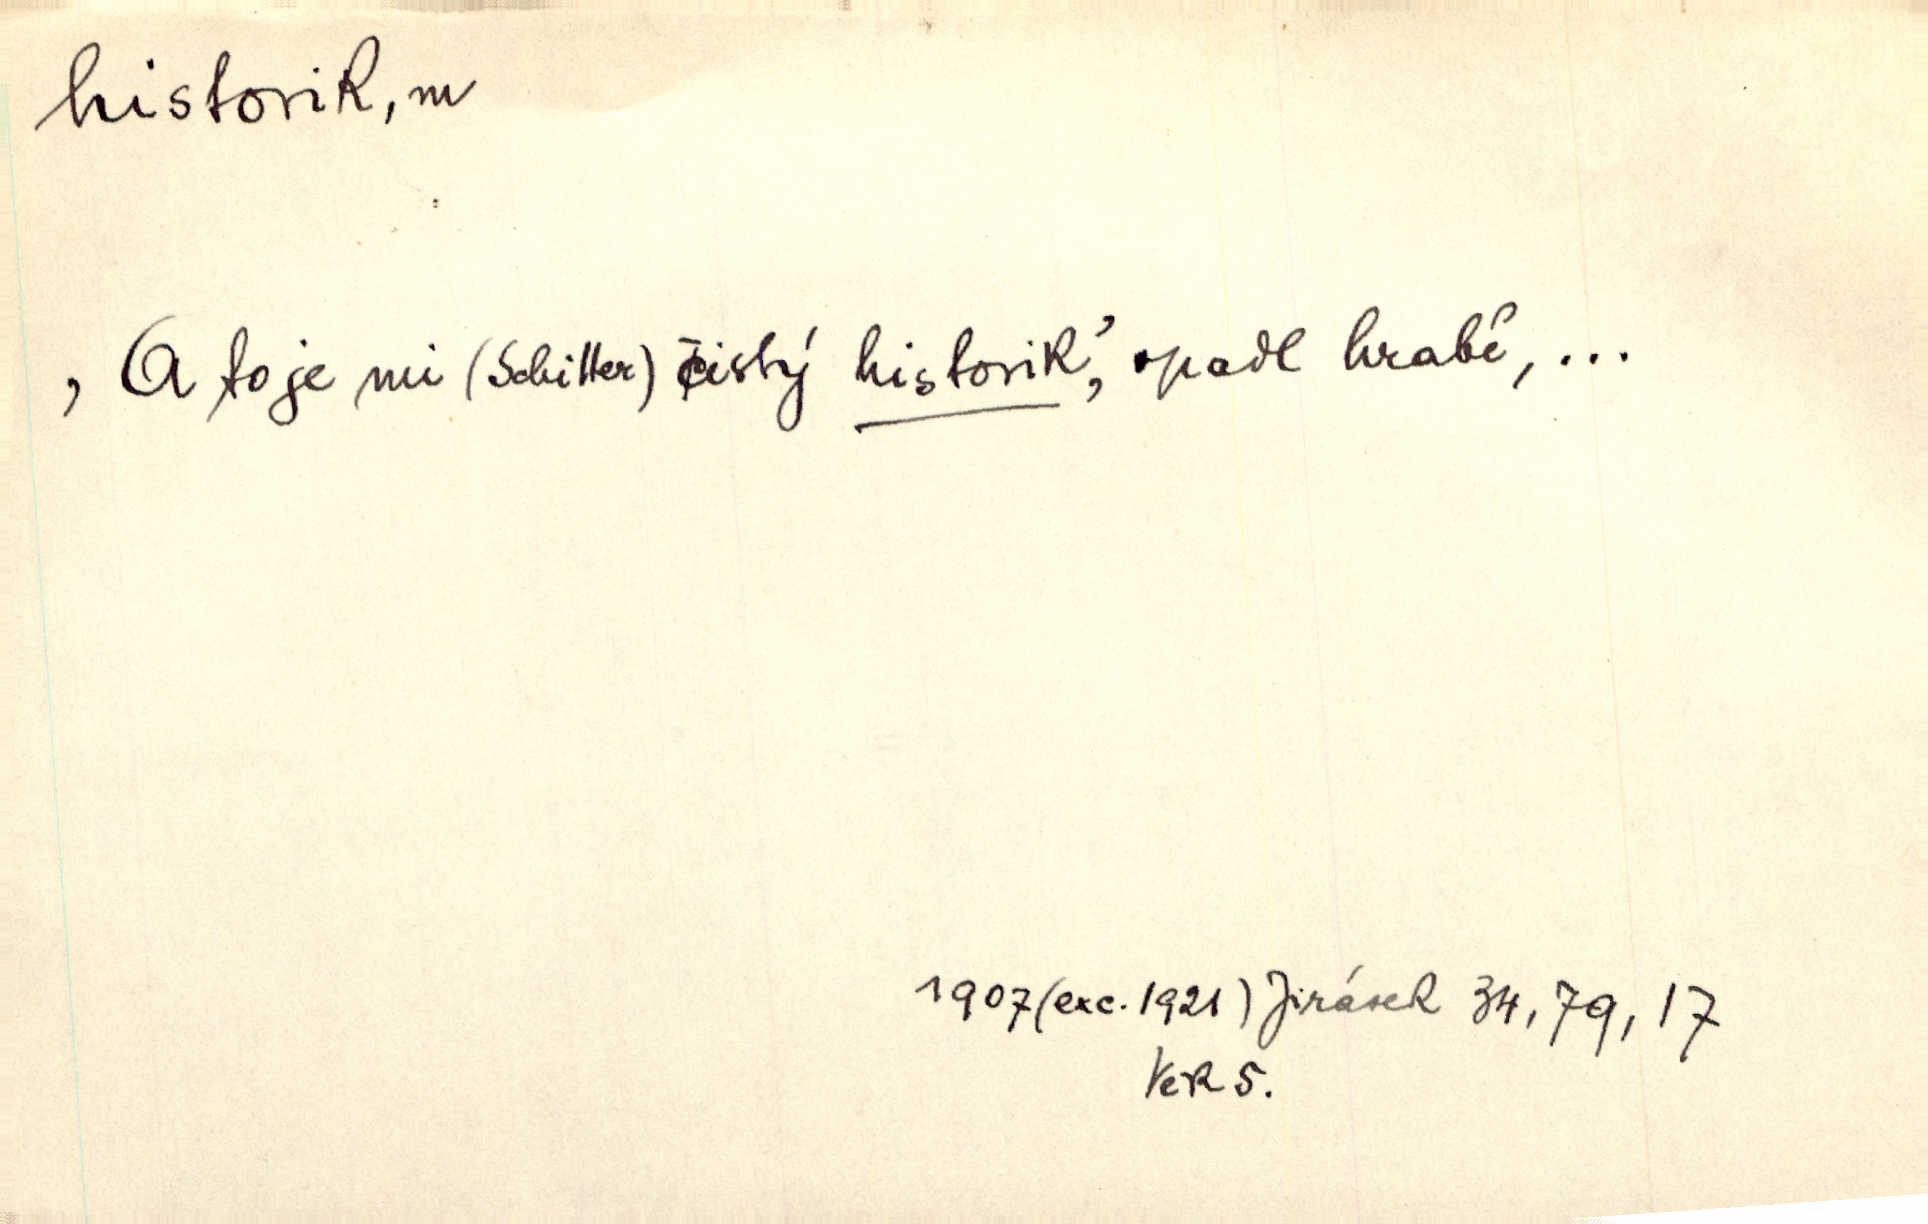 historik, m
‚A to je mi (Schiller) čistý historik,’ opadl hrabě, ...
1907 (exc. 1921) Jirásek 34, 79, 17
Věk 5.